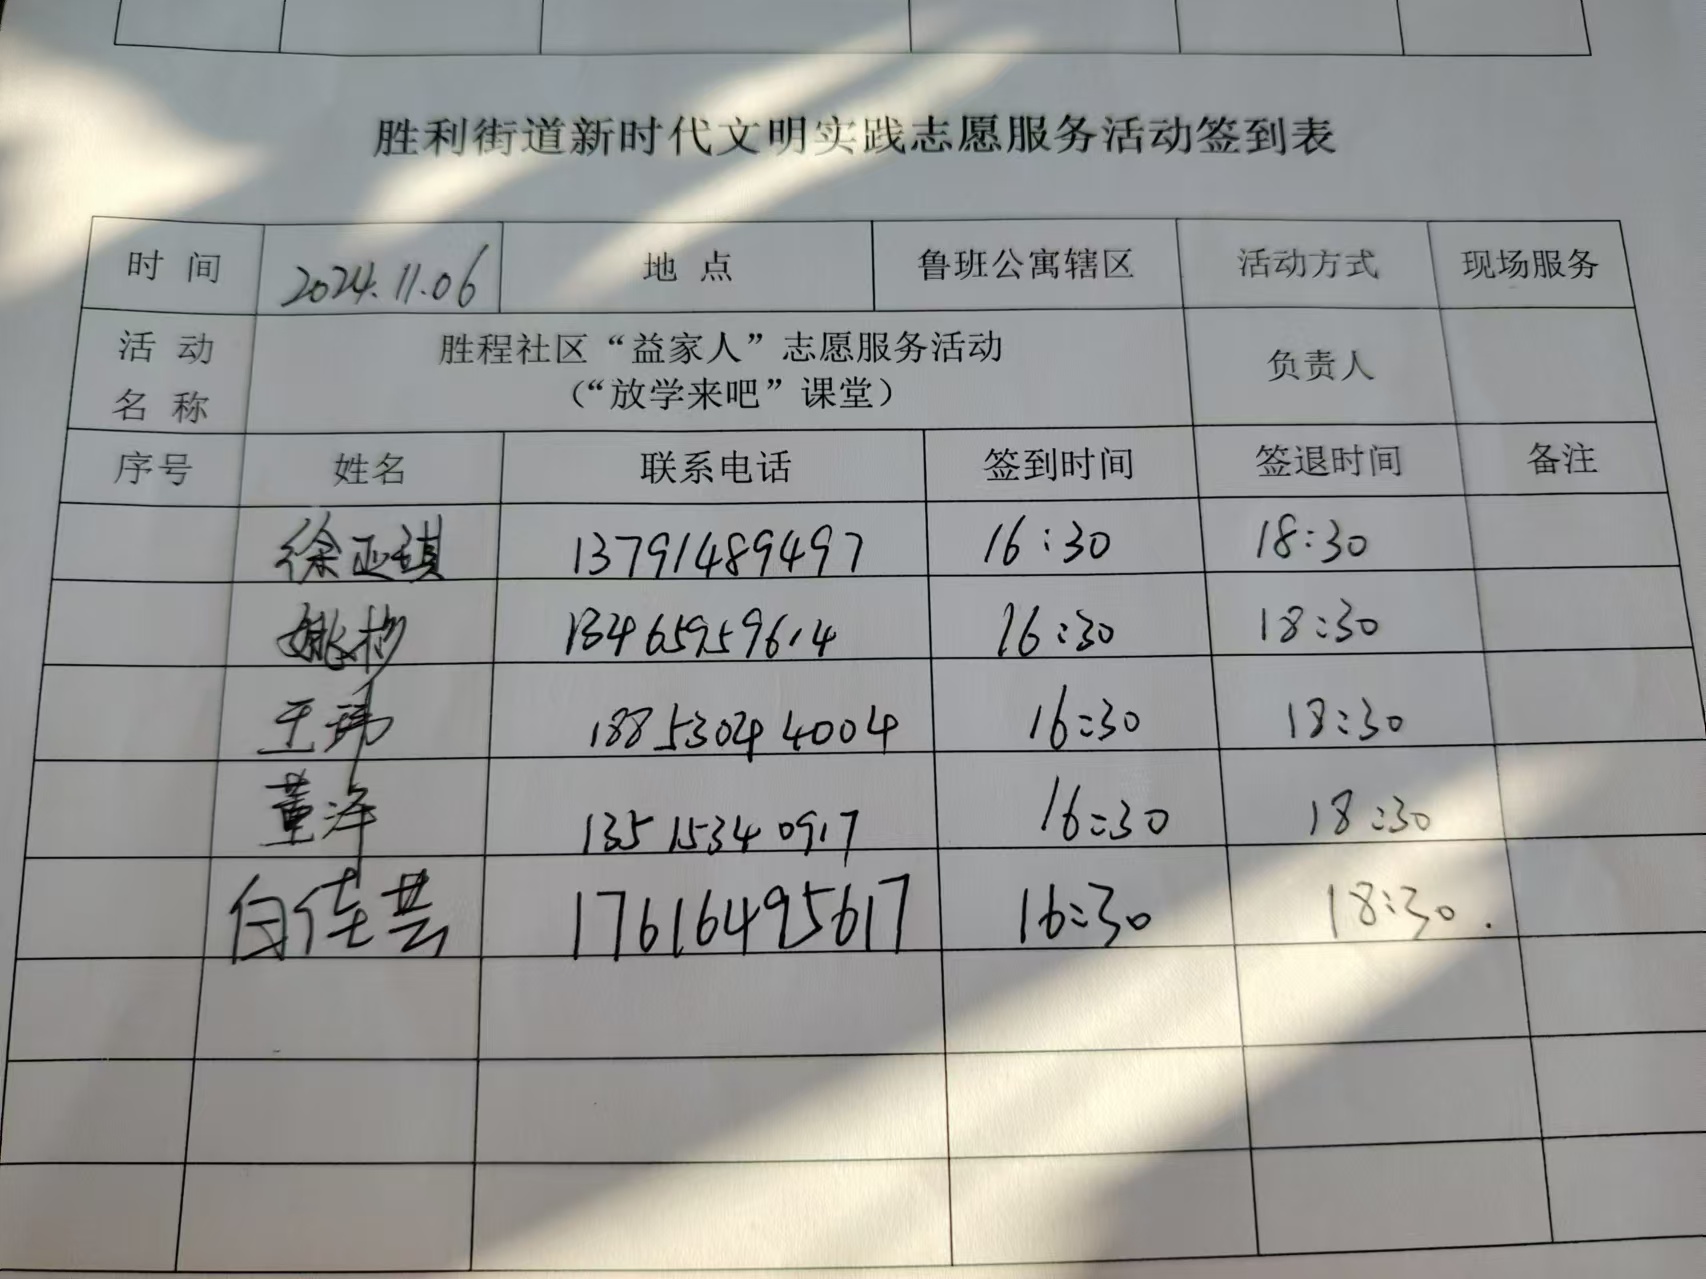 胜利街道新时代文明实践志愿服务活动签到表
时 间 2024.11.06 地 点 鲁班公寓辖区 活动方式 现场服务
活 动
名 称
胜程社区“益家人”志愿服务活动
（“放学来吧”课堂）
负责人
序号 姓名 联系电话 签到时间 签退时间 备注
徐亚琪 13791489497 16:30 18:30
姚杉 13465959614 16:30 18:30
王玮 18853044004 16:30 18:30
董泽 13515340917 16:30 18:30
白佳芸 17616495617 16:30 18:30.